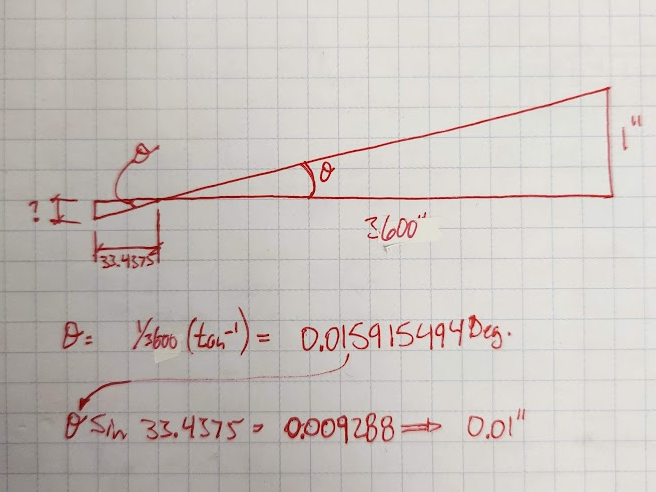 1"
θ
θ
?
3600"
33.4375
θ = 1/3600 (tan⁻¹) = 0.015915494 Deg.
θ Sin 33.4375 = 0.009288 ⇒ 0.01"